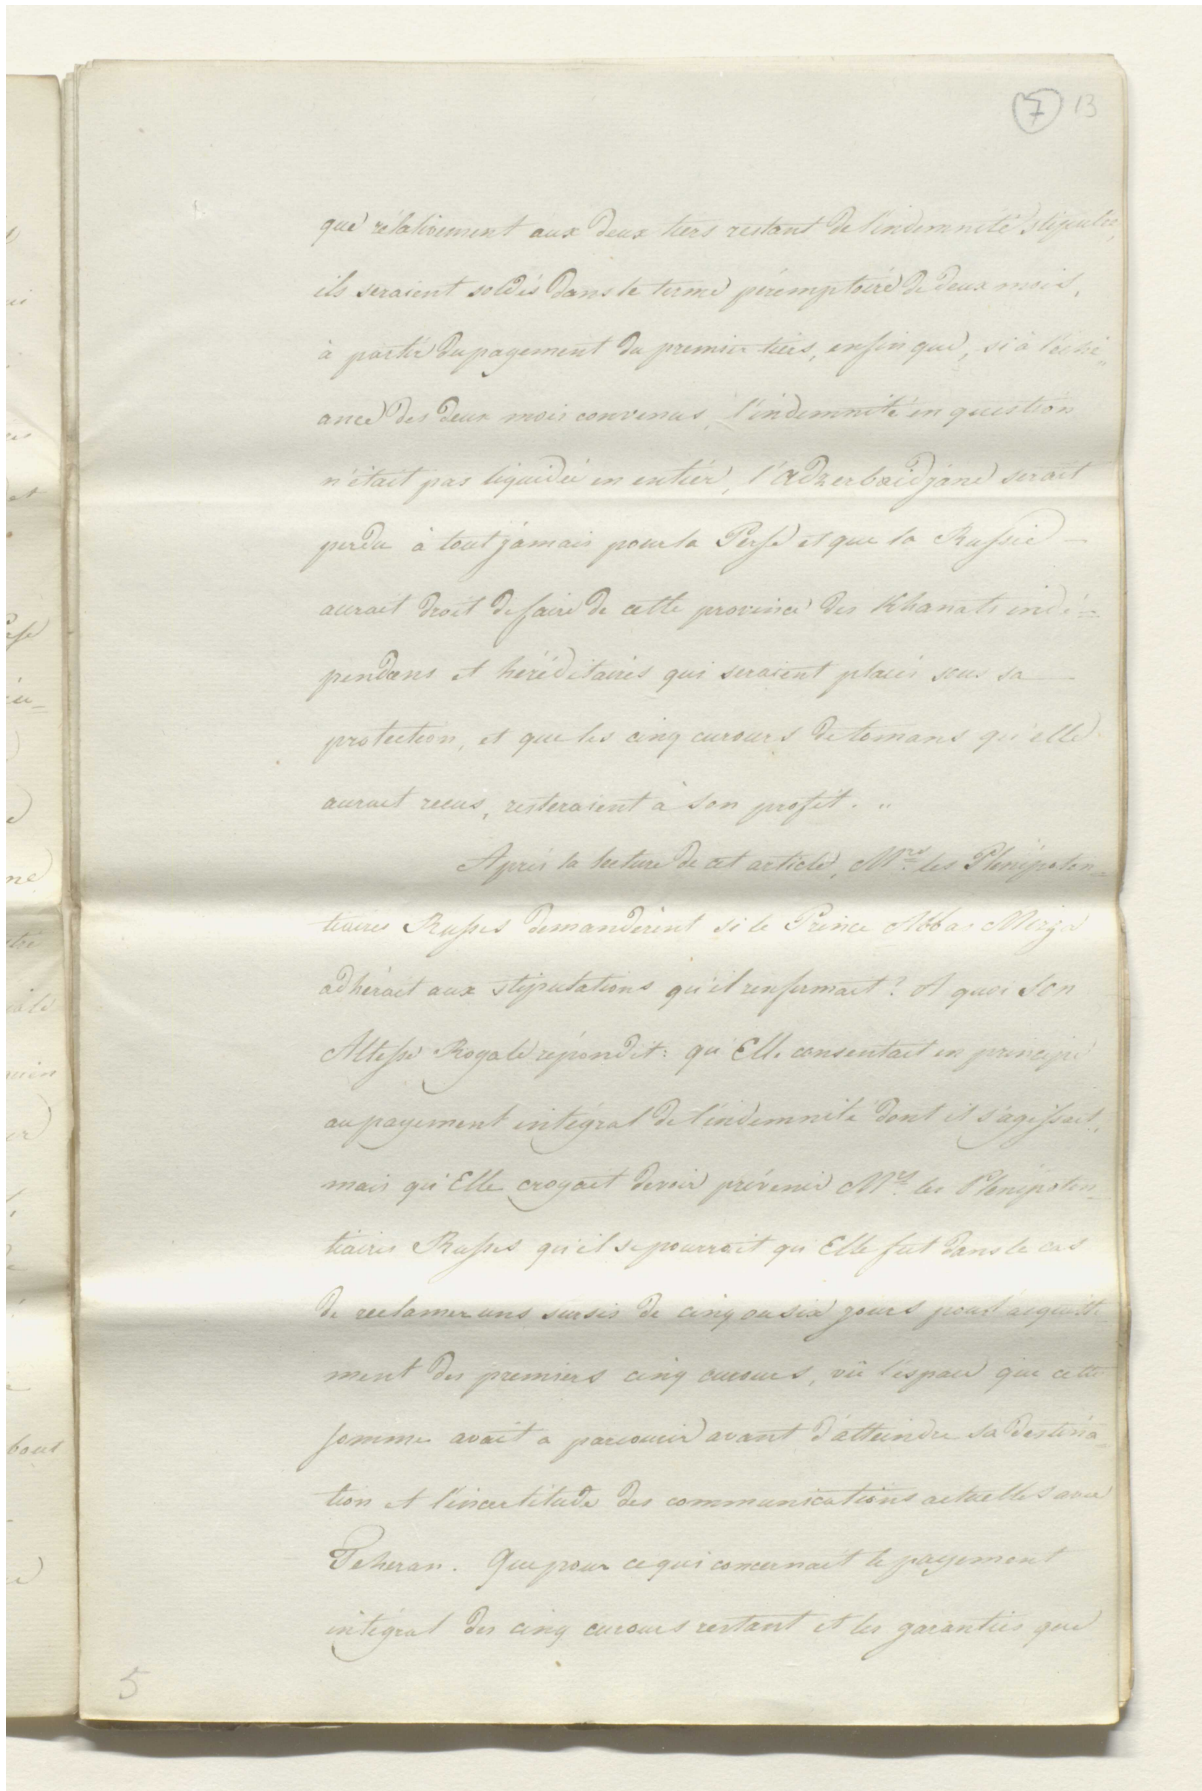 7 13
que rélativement aux deux tiers restant de l'indemnité stipulée,
ils seraient soldés dans le terme péremptoire de deux mois,
à partir du payement du premier tiers, enfin que, si à l'éché„
ance des deux mois convenus, l'indemnité en question
n'était pas liquidée en entier, l'Adzerbaidjane serait
perdu à tout jamais pour la Perse et que la Russie —
aurait droit de faire de cette province des Khanats indé-
pendans et héréditaires qui seraient placés sous sa —
protection, et que les cinq curours de tomans qu'elle
aurait recus, resteraient à son profit. „
Après la lecture de cet article, Mrs les Plénipoten-
tiaires Russes demandèrent si le Prince Abbas Mirza
adhérait aux stipulations qu'il renfermait? A quoi Son
Altesse Royale répondit: qu'Elle consentait en principe
au payement intégral de l'indemnité dont il s'agissait,
mais qu'Elle croyait devoir prévenir Mrs les Plénipoten-
tiaires Russes qu'il se pourrait qu'Elle fut dans le cas
de reclamer uns sursis de cinq ou six jours pour l'acquitte
ment des premiers cinq curours, vû l'espace que cette
somme avait a parcourir avant d'atteindre sa destina-
tion et l'incertitude des communications actuelles avec
Teheran. Que pour ce qui concernait le payement
intégral des cinq curours restant et les garanties que
5